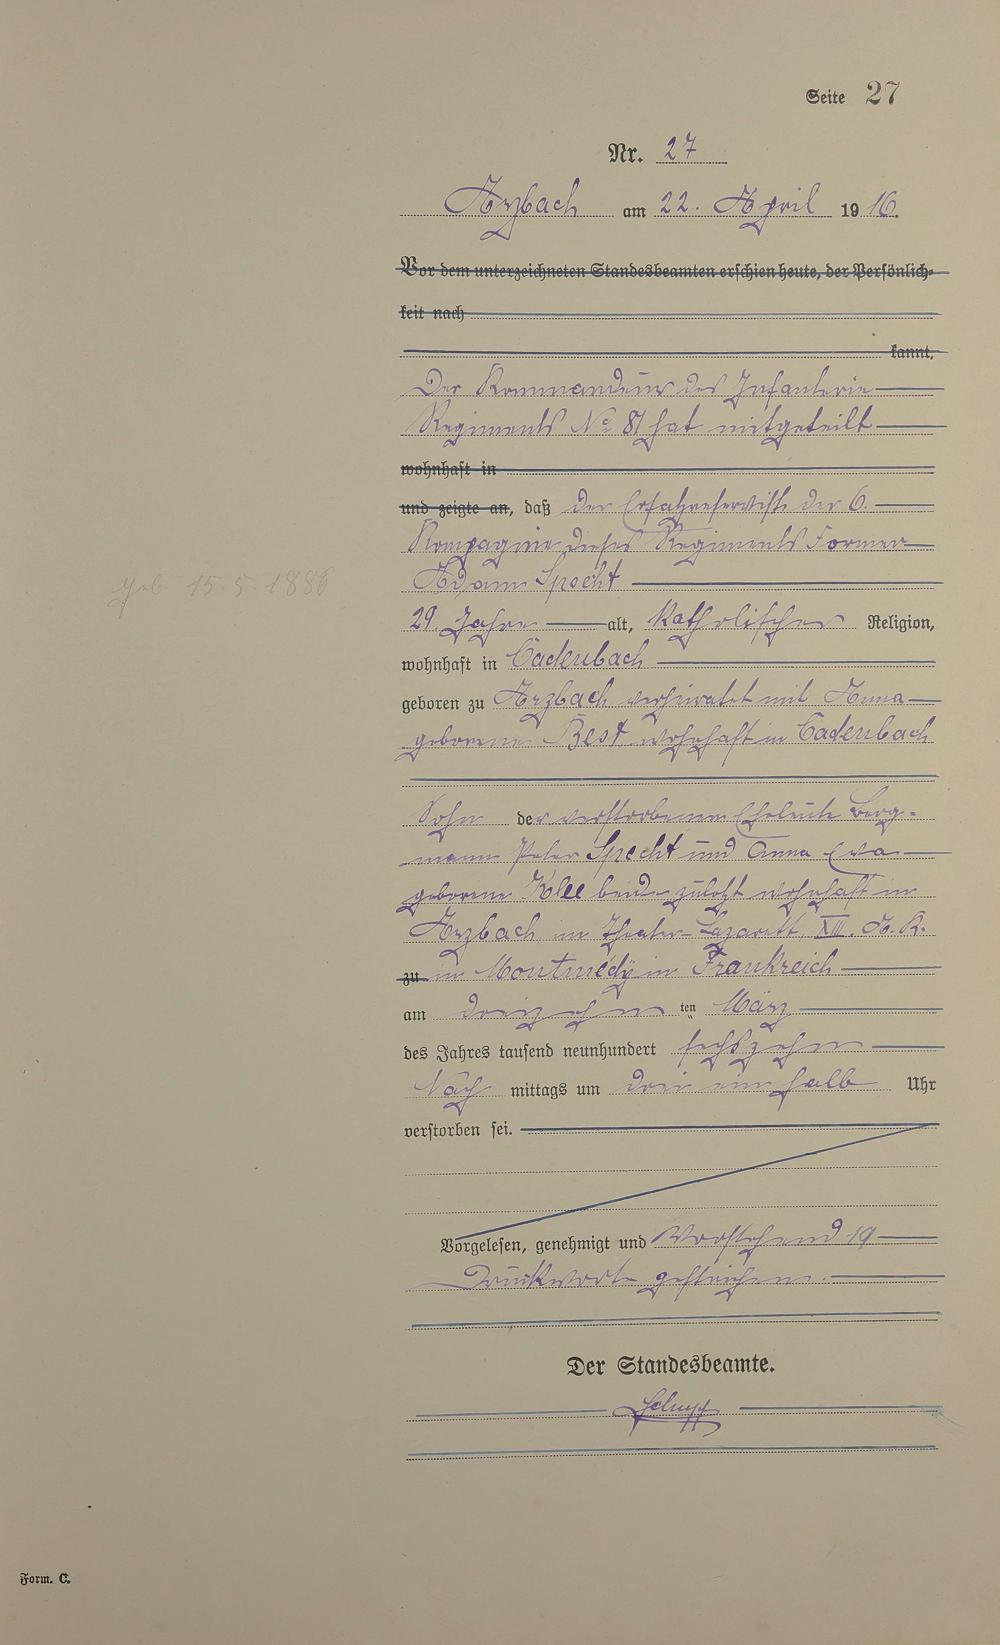 Seite 27
Nr. 27
Arzbach am 22. April 1916.
Vor dem unterzeichneten Standesbeamten erschien heute, der Persönlich-
keit nach
kannt,
Der Kommandeur des Infanterie
Regiments No 81 hat mitgeteilt
wohnhaft in
und zeigte an, daß der Ersatzreservist der 6.
Kompagnie dieses Regiments Former
Adam Specht
geb. 15.5.1886
29 Jahre alt, katholischer Religion,
wohnhaft in Cadenbach
geboren zu Arzbach verheiratet mit Anna
geborene Best wohnhaft in Cadenbach
Sohn der verstorbenen Eheleute Berg-
mann Peter Specht und Anna Eva
geborene Klee beide zuletzt wohnhaft in
Arzbach im Theater-Lazarett, XIII. A. K.
zu in Montmédy in Frankreich
am dreizehn ten März
des Jahres tausend neunhundert sechszehn
Nach mittags um drei ein halb Uhr
verstorben sei.
Vorgelesen, genehmigt und Vorstehend 19
Druckworte gestrichen.
Der Standesbeamte.
Form. C.